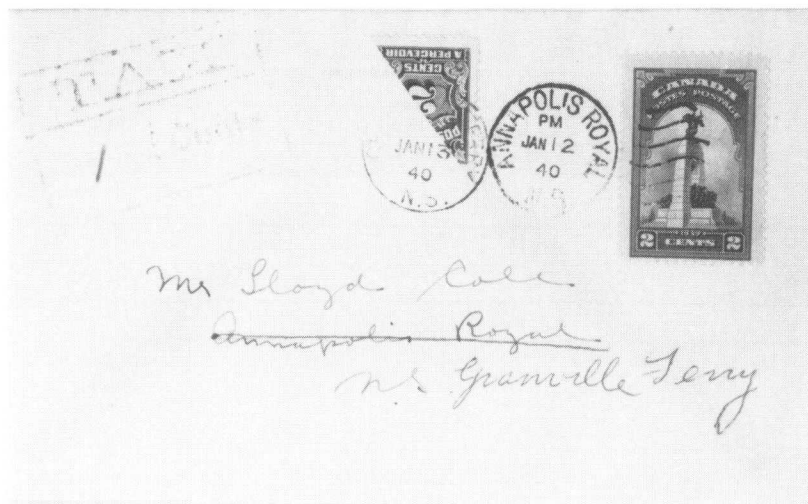 TAX
A PERCEVOIR
CENTS
2
JAN 13
40
N.S.
ANNAPOLIS ROYAL
PM
JAN 12
40
N.S.
CANADA
POSTES POSTAGE
2 CENTS 2
Mr Lloyd Cole
Annapolis Royal
N.S. Granville Ferry